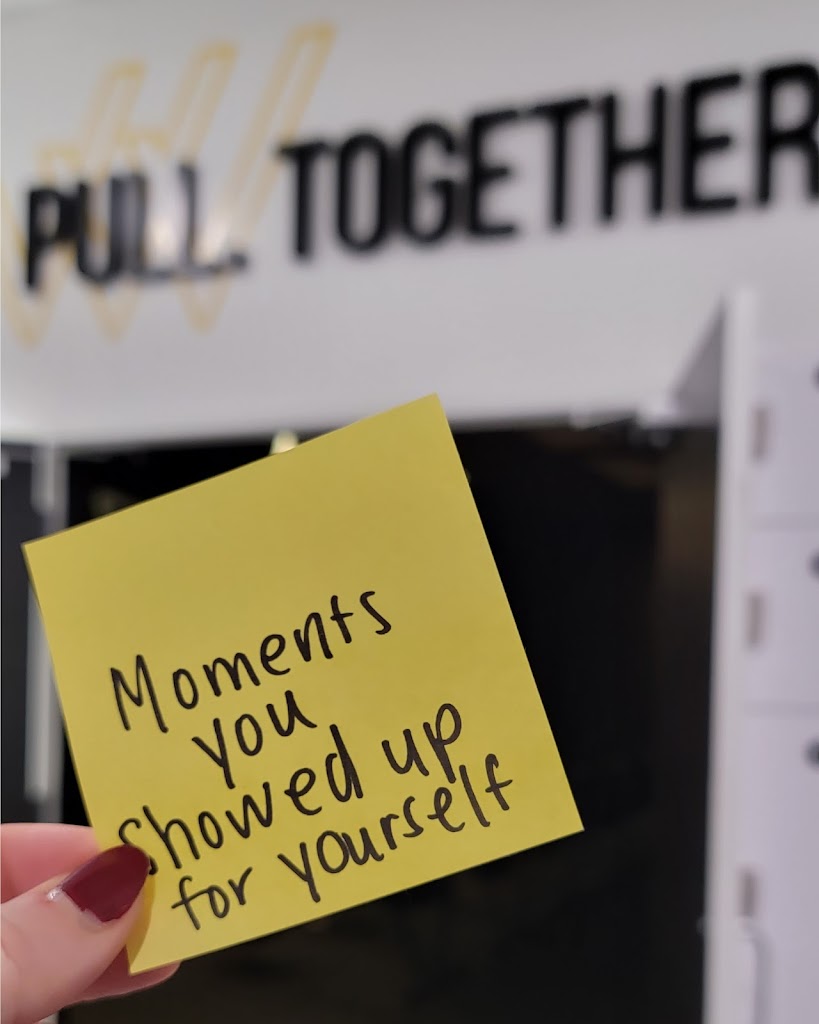 PULL. TOGETHER
Moments
you
Showed up
for yourself